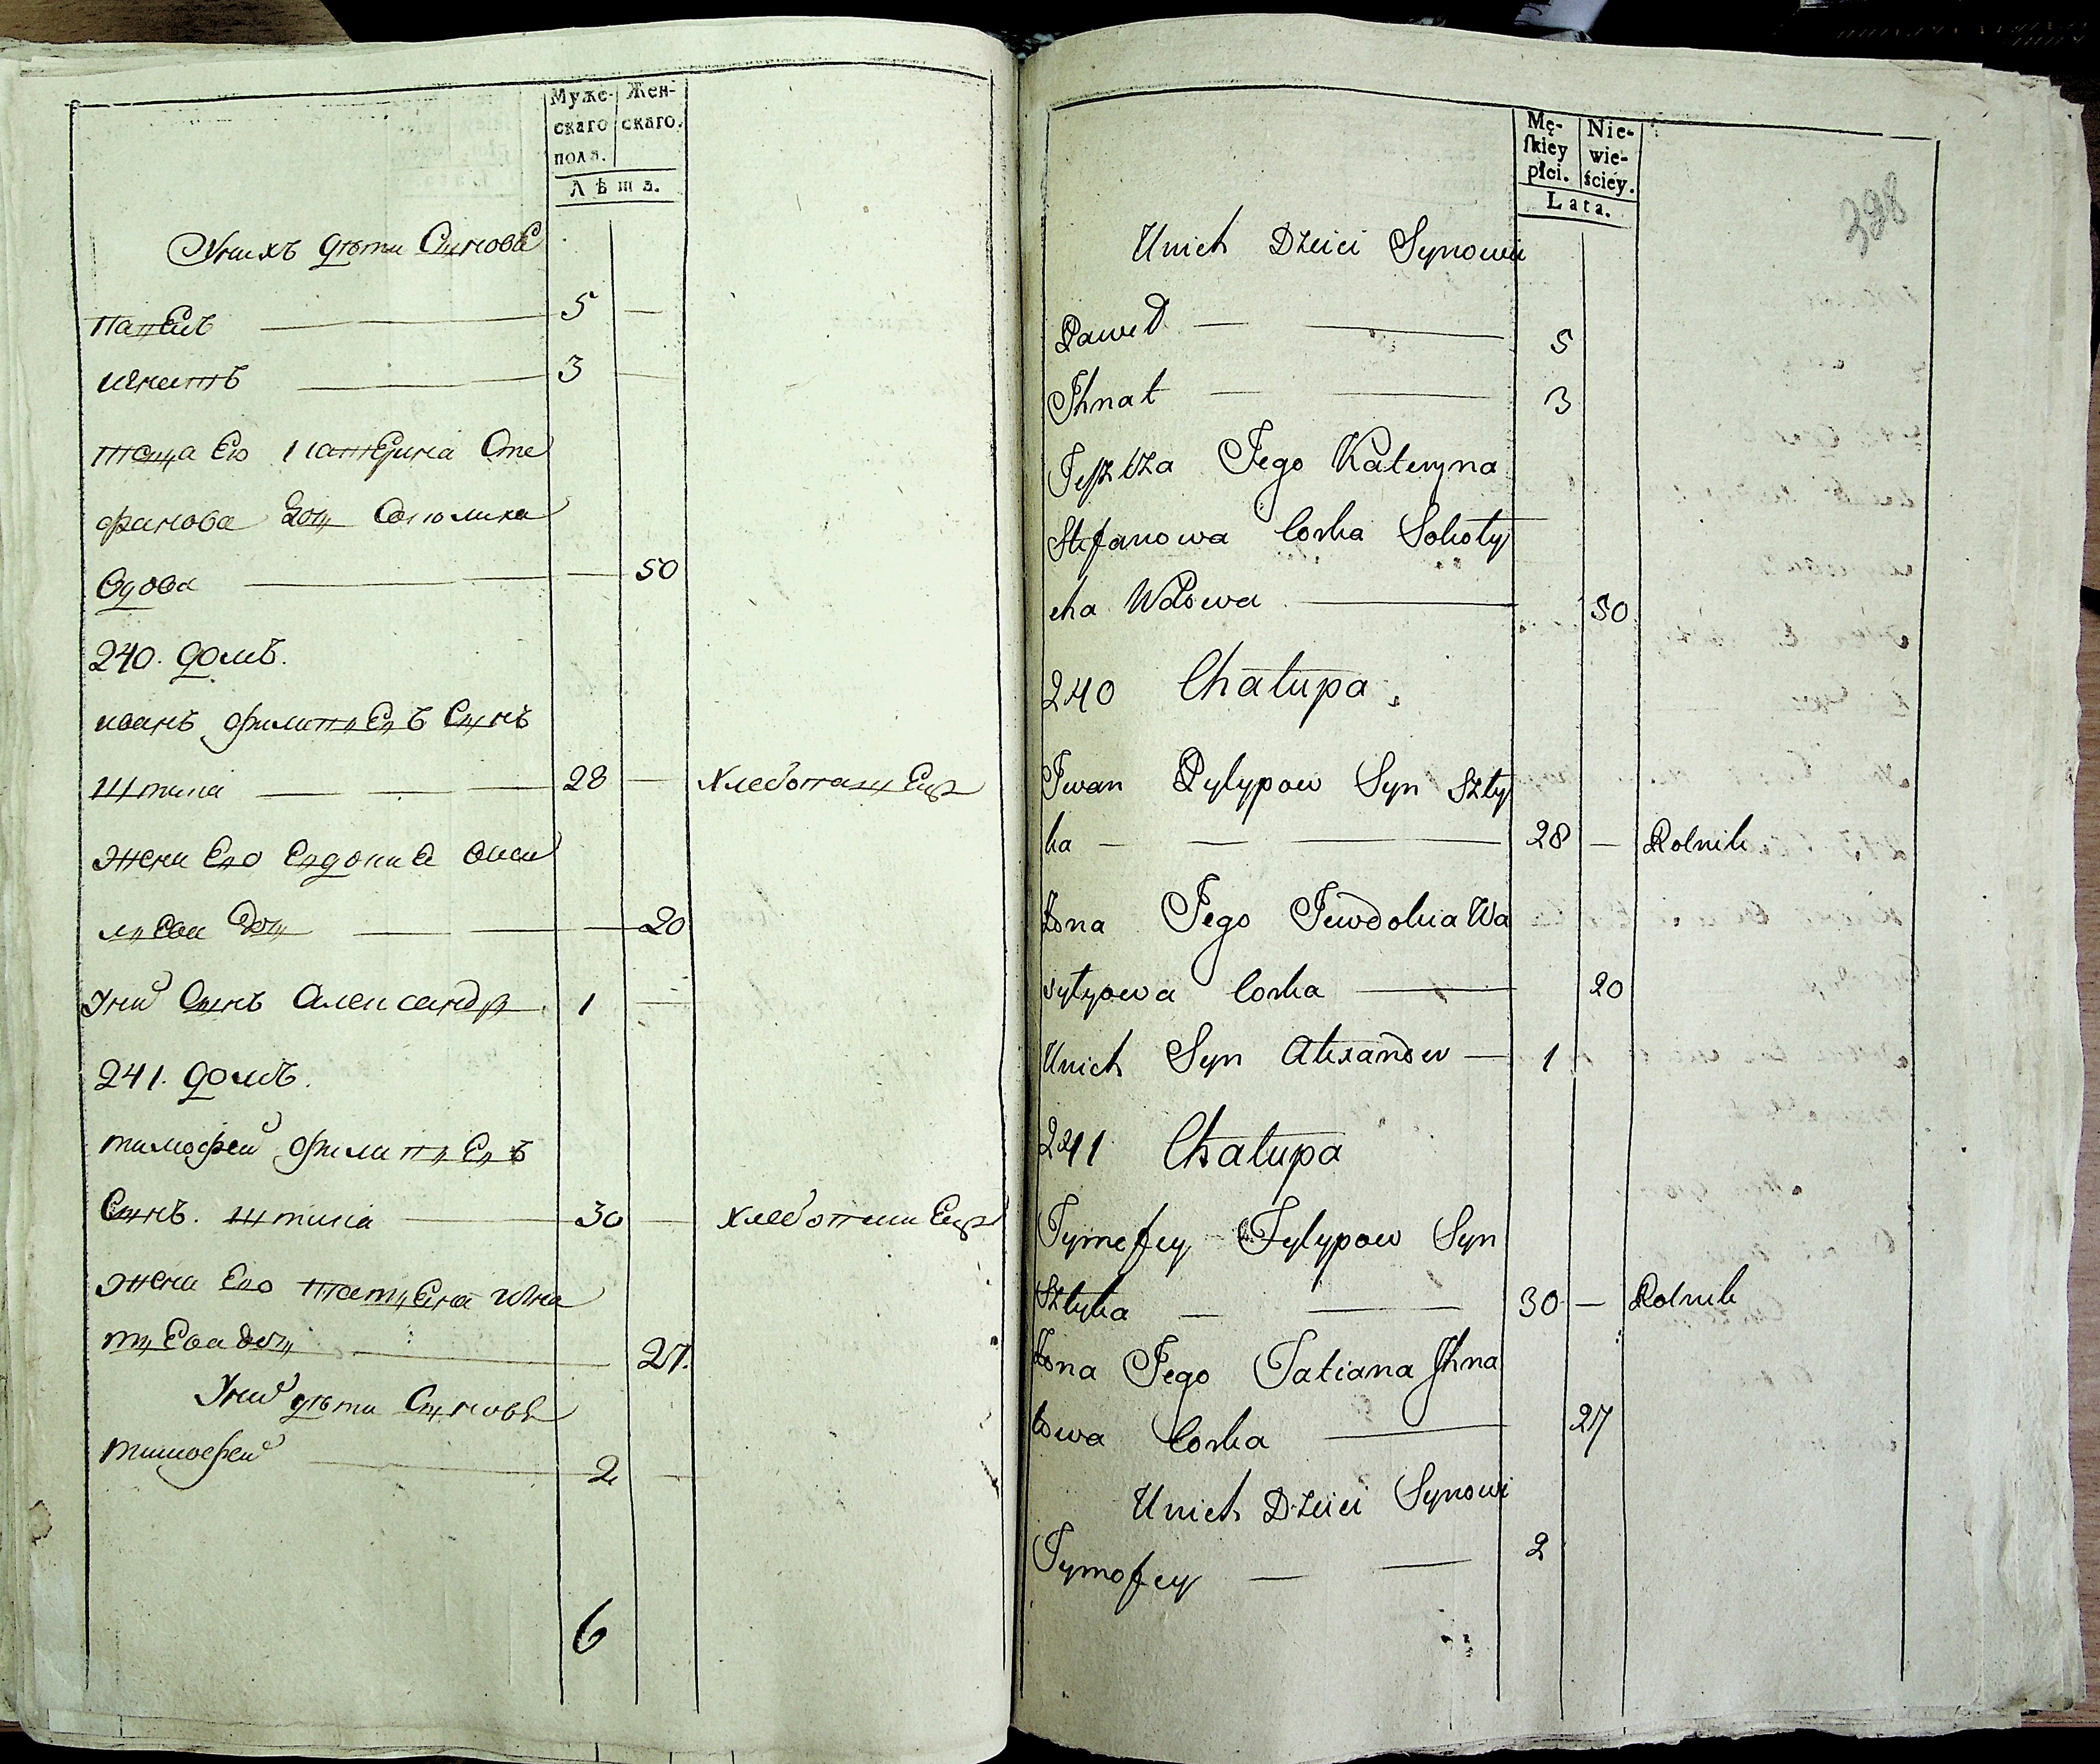 Муже- Жен-
скаго скаго.
полѧ.
Лѣта.
У нихъ дѣти Сынове
Павелъ 5 —
игнатъ 3 —
теща Его Катерина Сте
фанова доч
вдова — 50
240. домъ.
иванъ филиповъ Сынъ
Штика 28 — хлебопашецъ
жена Его Евдокиа васи
лиева доч — 20
У ний Сынъ Александр 1 —
241. домъ.
тимофей филиповъ
Сынъ. штика 30 — хлебопашецъ
жена Его татиена игна
тиева доч — 27.
У ний дѣти Сынове
тимофей 2 —
6
Mę- Nie-
ſkiey wie-
płci. ściéy.
Lata.
398
Unich Dzieci Synowie
Paweł — 5
Ihnat — 3
Teszcza Jego Kateryna
Stefanowa Corka Sokoły
cha Wdowa — 50
240 Chałupa.
Iwan Pylypow Syn Szty
ka — 28 — Rolnik
Żona Jego Jewdokia Wa
sylyowa Corka — 20
Unich Syn Alexander — 1
241 Chałupa
Tymofey Fylypow Syn
Sztyka — 30 — Rolnik
Żona Jego Tatiana Ihna
towa Corka — 27
Unich Dzieci Synowi
Tymofey — 2